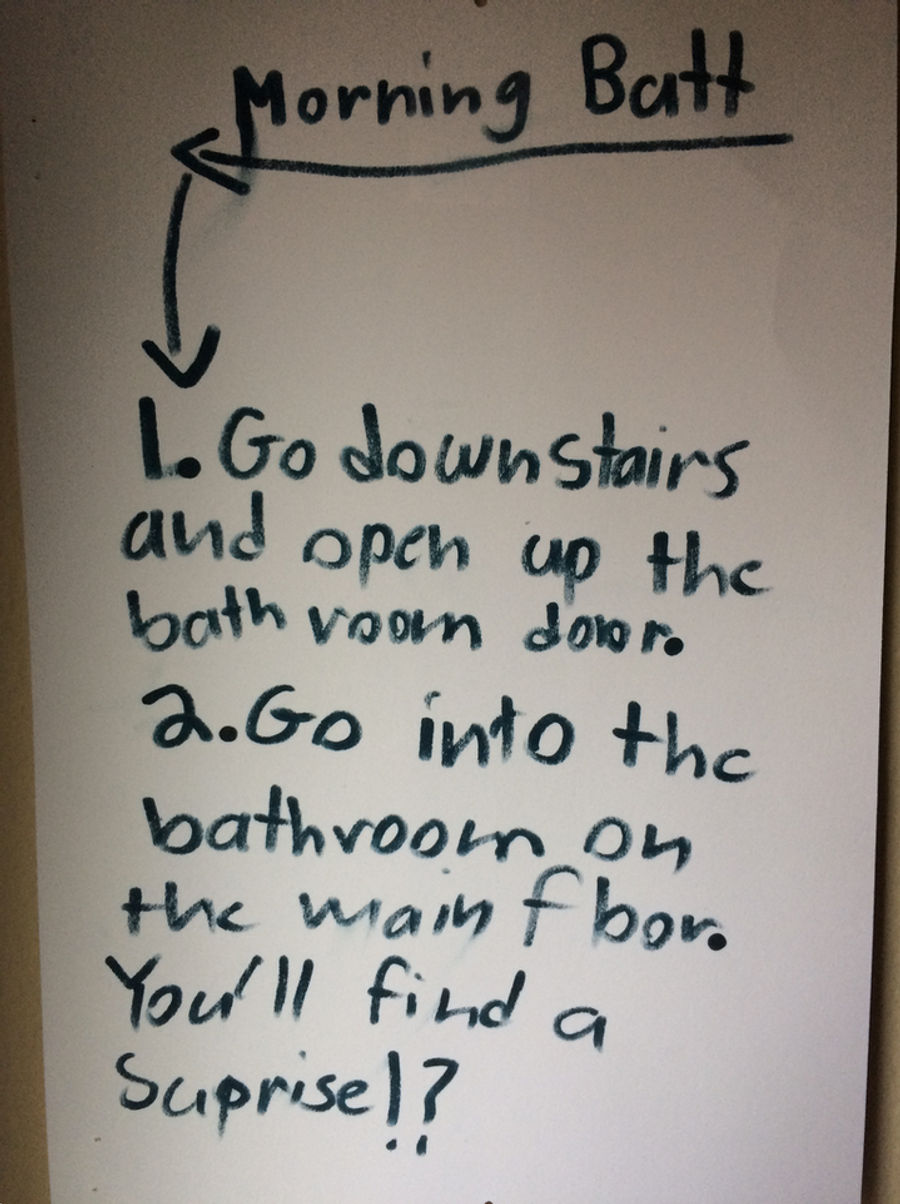 Morning Batt
1. Go downstairs
and open up the
bathroom door.
2. Go into the
bathroom on
the main floor.
You'll find a
Suprise!?